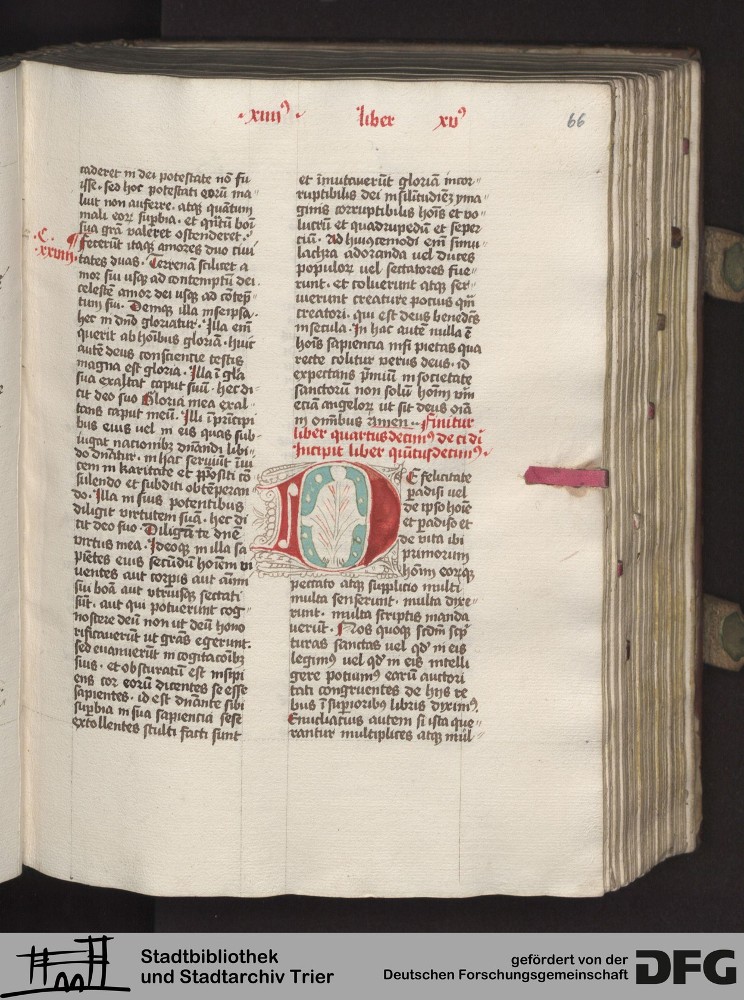 ·xiiii⁹· liber xv⁹
66
caderet in dei potestate nō fu
isse · sed hoc potestati eorū ma
luit non auferre · atqꝫ quātum
mali eoꝝ supbia · et q̄ntū boni
sua grā valeret ostenderet ·
C · xxviii
Fecerūt itaqꝫ amores duo ciui
tates duas · Terrenā scilicet a
mor sui usqꝫ ad contemptū dei
celestē amor dei usqꝫ ad cōtēp
tum sui · Deniqꝫ illa in seipsa
hec in dn̄o gloriatur · Illa em̄
querit ab hoībus gloriā · huic
autē deus conscientie testis
magna est gloria · Illa ī glā
sua exaltat caput suū · hec di
cit deo suo Gloria mea exal
tans caput meū · Illi ī pricipi
bus eius vel in eis quas sub
iugat nacionibꝫ dn̄andi libi
do dn̄atur · in hac seruiūt īui
cem in karitate et ppositi cō
sulendo et subditi obtēperan
do · Illa in suis potentibus
diligit virtutem suā · hec di
cit deo suo · Diligā te dn̄e
virtus mea · Ideoqꝫ in illa sa
pientes eius secūdū hoīem vi
uentes aut corpis aut aīmi
sui boā aut vtriusqꝫ sectati
sūt · aut qui potuerunt cog
noscere deū non ut deū hono
rificauerūt ut grās egerunt ·
sed euanuerūt in cogitacoībꝫ
suis · et obscuratū est insipi
ens cor eorū dicentes se esse
sapientes · id est dn̄ante sibi
supbia in sua sapiencia sese
extollentes stulti facti sunt
et īmutauerūt gloriā incor
ruptibilis dei in silitudiēꝫ yma
ginis corruptibilis hoīs et vo
lucrū et quadrupedū et serpē
ciū · Ad huiuscemodi em̄ simu
lachra adoranda vel duces
populoꝝ vel sectatores fue
runt · et coluerunt atqꝫ ser
uierunt creature pocius q̄m
creatori · qui est deus benedc̄s
in secula · In hac autē nulla ē
hoīs sapiencia nisi pietas qua
recte colitur verus deus · id
expectans p̄miū in societate
sanctorū non solū hoīm vm̄
eciā angeloꝝ ut sit deus oīa
in omnibus amen · Finitur
liber quartusdecim⁹ de ci di
Incipit liber quītusdecim⁹ ·
De felicitate
padisi vel
de ipso hoīe
et padiso et
de vita ibi
primorum
hoīm eorꝫqꝫ
peccato atqꝫ supplicio multi
multa senserunt · multa dixe
runt · multa scriptis manda
uerūt · Nos quoqꝫ scdm scp̄
turas sanctas vel qd̓ in eis
legim⁹ vel qd̓ in eis intelli
gere potuim⁹ earū auctori
tati congruentes de hijs re
bus ī superiorib⁹ libris dixim⁹ ·
Enucliacius autem si ista que
rantur multiplices atqꝫ mul
Stadtbibliothek
und Stadtarchiv Trier
gefördert von der
Deutschen Forschungsgemeinschaft
DFG